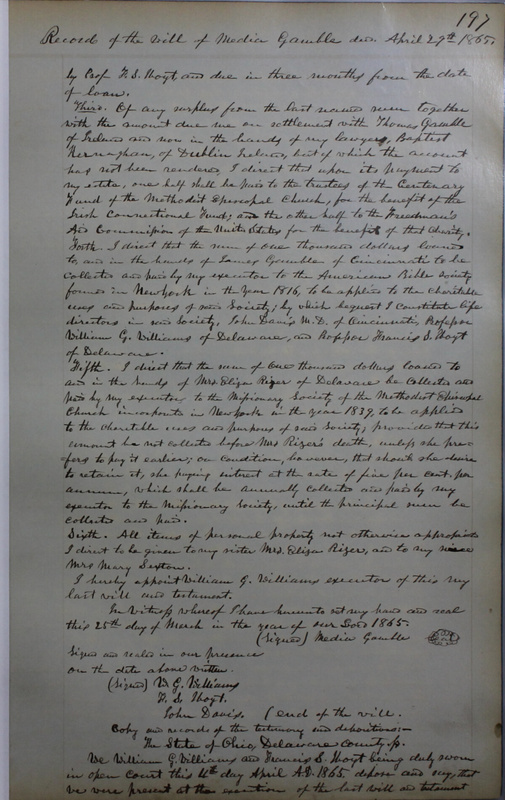 197
Record of the will of Media Gamble decd. April 29th 1865.
by Prof F. S. Hoyt, and due in three months from the date
of loan.
Third. Of any surplus from the last named sum together
with the amount due me on settlement with Thomas Gamble
of Ireland and now in the hands of my lawyers, Baptist
Kernaghan, of Dublin Ireland, but of which the account
has not been rendered, I direct that upon its payment to
my estate, one half shall be paid to the trustees of the Centenary
Fund of the Methodist Episcopal Church, for the benefit of the
Irish Connectional Fund; and the other half to the Freedman's
Aid Commission of the United States for the benefit of that charity.
Forth. I direct that the sum of one thousand dollars loaned
to, and in the hands of James Gamble of Cincinnati to be
collected and paid by my executor to the American Bible Society
formed in New York in the year 1816, to be applied to the charitable
uses and purposes of said Society; by which bequest I constitute life
directors in said Society, John Davis M.D. of Cincinnati, Professor
William G. Williams of Delaware, and Professor Francis S. Hoyt
of Delaware.
Fifth. I direct that the sum of One thousand dollars loaned to
and in the hands of Mrs. Eliza Rizer of Delaware be collected and
paid by my executors to the Missionary Society of the Methodist Episcopal
Church incorporated in New York in the year 1839, to be applied
to the charitable uses and purposes of said Society, provided that this
amount be not collected before Mrs Rizer's death, unless she pre-
fers to pay it earlier; on condition, however, that should she desire
to retain it, she paying interest at the rate of five per cent. per
annum, which shall be annually collected and paid by my
executor to the Missionary Society, until the principal sum be
collected and paid.
Sixth. All items of personal property not otherwise appropriated
I direct to be given to my sister Mrs. Eliza Rizer, and to my niece
Mrs Mary Sexton.
I hereby appoint William G. Williams executor of this my
last will and testament.
In Witness whereof I have hereunto set my hand and seal
this 25th day of March in the year of our Lord 1865.
(Signed) Media Gamble
Signed and sealed in our presence
on the date above written.
(Signed) W. G. Williams
F. S. Hoyt.
John Davis. (end of the will.
Copy and records of the testimony and depositions:-
The State of Ohio, Delaware County ss.
We William G. Williams and Francis S. Hoyt being duly sworn
in open Court this 4th day April A.D. 1865, depose and say, that
we were present at the execution of the last will and testament